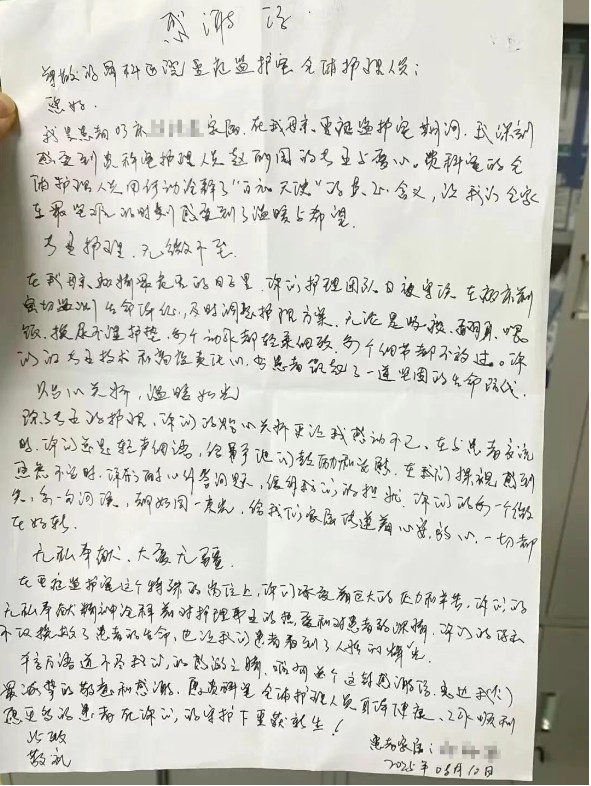 感谢信
尊敬的 科医院重症监护室全体护理人员：
您好。
我是患者 家属。在我母亲重症监护室期间，我深刻
感受到贵科室护理人员 的专业与爱心。贵科室的全
体护理人员用行动诠释了"白衣天使"的真正含义，让我们全家
在最 的时刻感受到了温暖与希望。
专业护理，无微不至
在我母亲病情最危重的日子里，你们护理团队日夜守護，在病床前
密切监测生命体征，及时调整护理方案。无论是吸痰、翻身、喂
饭、换尿不湿护垫，每个动作都轻柔细致，每个细节都不放过。你
们的专业技术和 责任心，为患者筑起了一道坚固的生命防线。
贴心关怀，温暖如光
除了专业的护理，你们的贴心关怀更让我感动不已。在与患者交流
时，你们总是轻声细语，给予 们鼓励和安慰。在我们探视感到
焦虑不安时，你们耐心解答问题， 我们的担忧。你们的每一个微
笑，每一句问候，都如同一束光，给我们家属传递着心安，放心，一切都
在好转。
无私奉献，大爱无疆
在重症监护室这个特殊的岗位上，你们承受着巨大的压力和辛苦。你们的
无私奉献精神诠释着对护理事业的热爱和对患者的深情。你们的付出
不仅挽救了患者的生命，也让我们患者看到了人性的辉光。
千言万语道不尽我们的感激之情，唯有 这封感谢信，表达我们
最诚挚的敬意和感激。愿贵科室全体护理人员身体健康、工作顺利
愿更多的患者在你们的守护下重获新生！
此致
敬礼
患者家属：
2025年03月10日